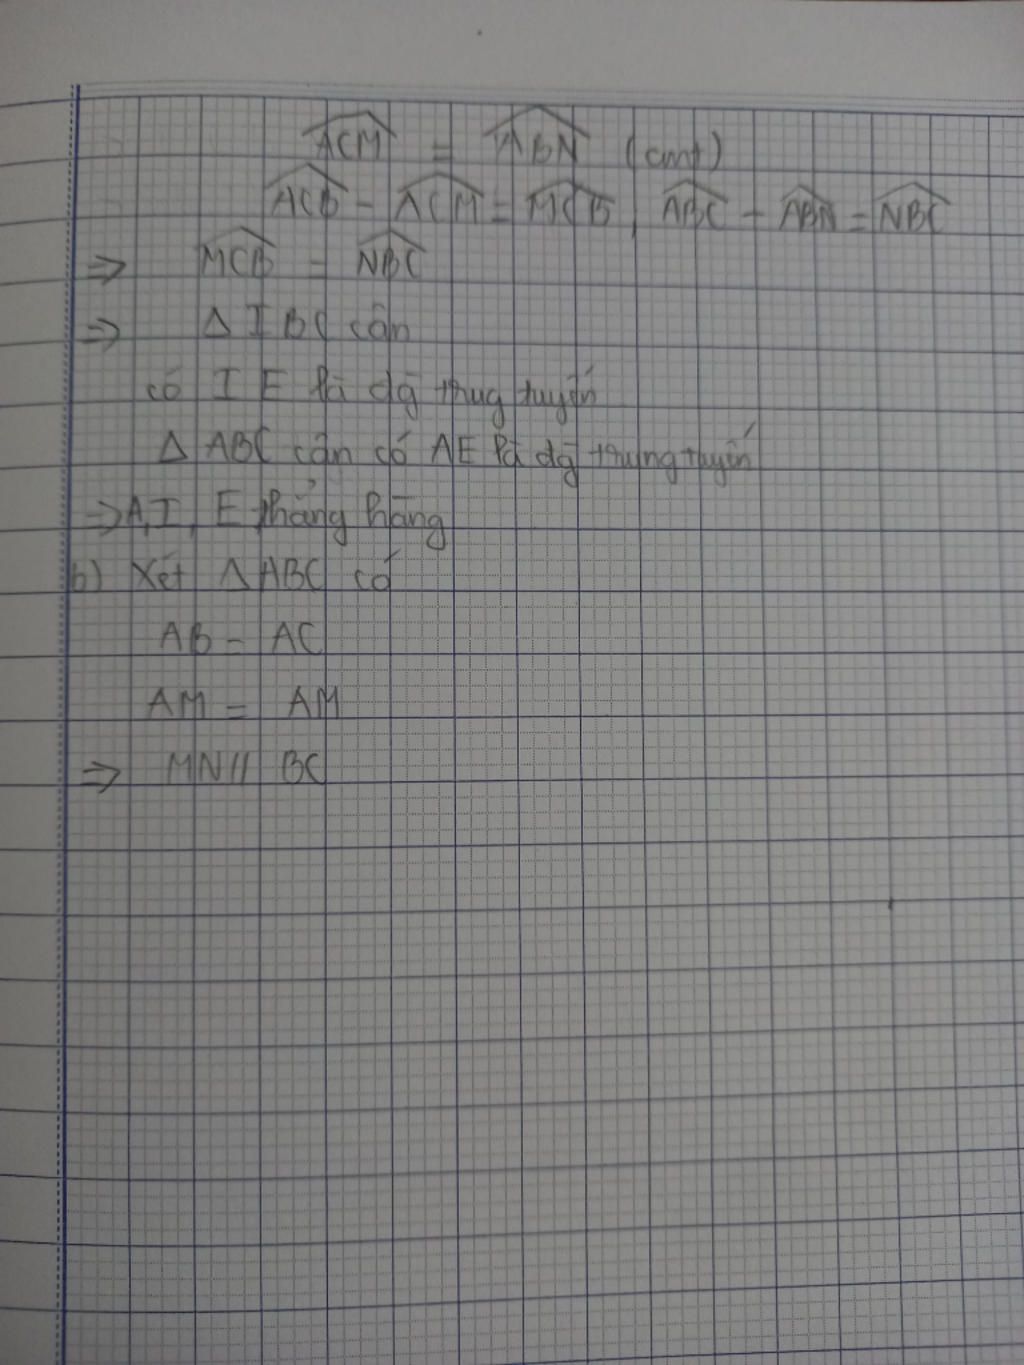 ACM = ABN (cmt)
ACB - ACM = MCB, ABC - ABN = NBC
=> MCB = NBC
=> Δ IBC cân
có IE là đg thug tuyến
Δ ABC cân có AE là đg trung tuyến
=> A, I, E thẳng hàng
b) Xét Δ ABC có
AB = AC
AM = AM
=> MN // BC